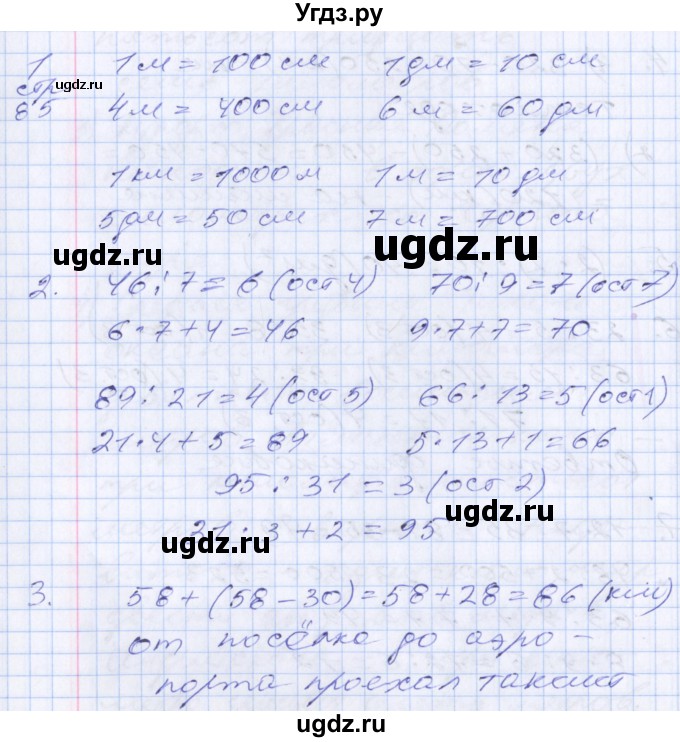 Угдз.ру
1 1м = 100 см 1дм = 10 см
стр
ugdz.ru
85 4м = 400 см 6 м = 60 дм
ugdz.ru
1км = 1000м 1м = 10 дм
5дм = 50 см 7 м = 700 см
ugdz.ru ugdz.ru
2. 46 : 7 = 6 (ост 4) 70 : 9 = 7 (ост 7)
6·7+4 = 46 9·7+7 = 70
89 : 21 = 4 (ост 5) 66 : 13 = 5 (ост 1)
21·4+5 = 89 5·13+1 = 66
95 : 31 = 3 (ост 2)
ugdz.ru
31·3+2 = 95
ugdz.ru
3. 58+(58-30)=58+28=86 (км)
от посёлка до аэро-
ugdz.ru
порта проехал таксист
ugdz.ru
ugdz.ru